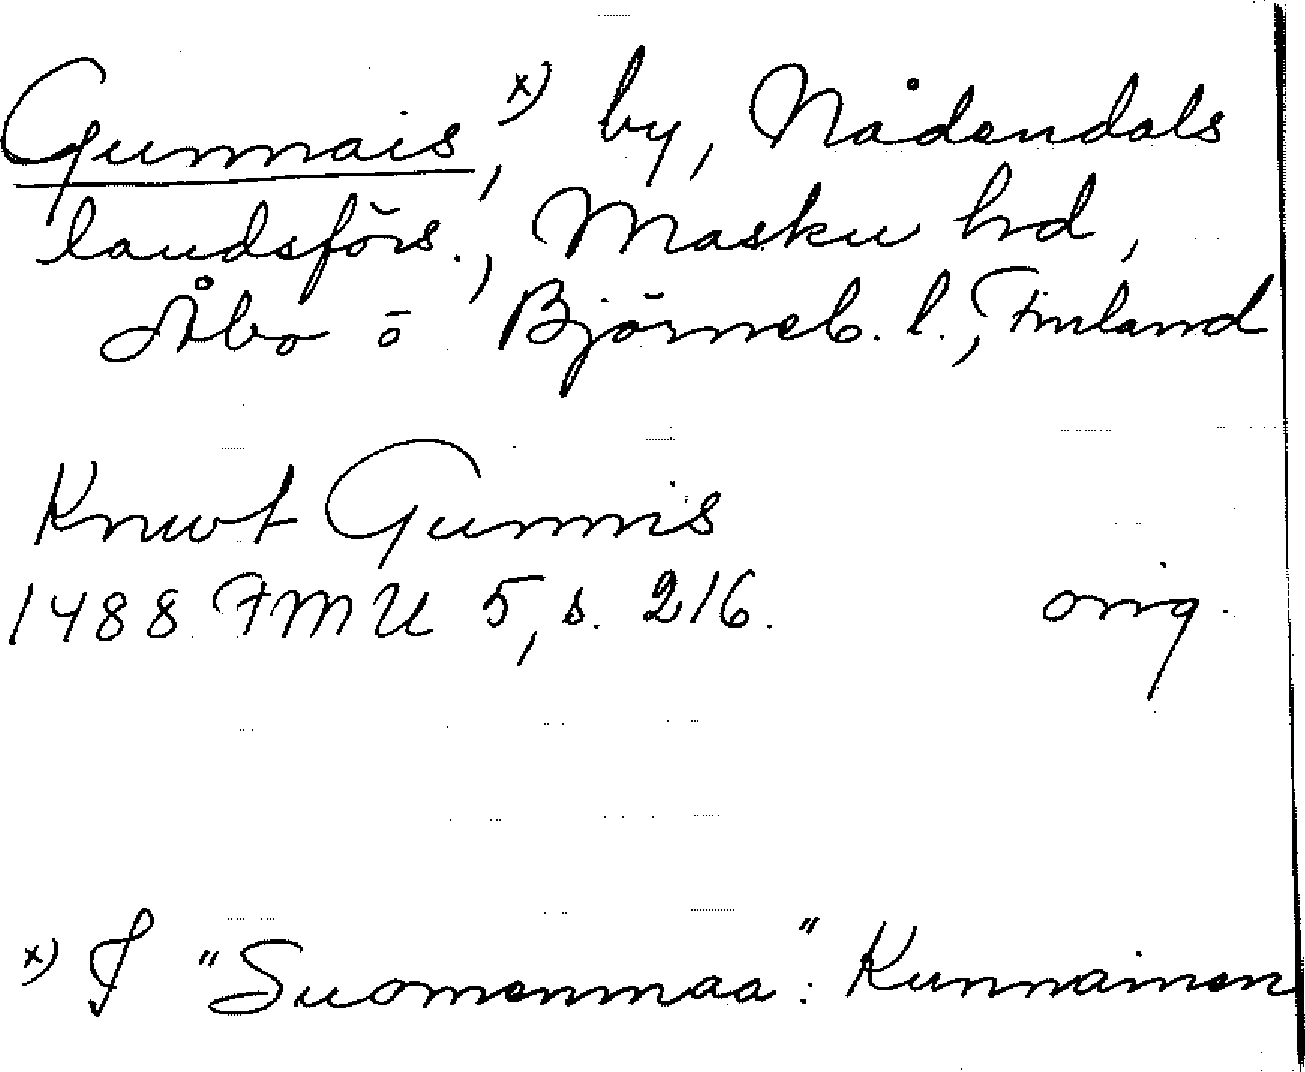 Gunnais, x) by, Nådendals
landsförs., Masku hd,
Åbo o Björneb. l., Finland
Knwt Gunnis
1488 FMU 5, s. 216. orig.
x) I "Suomenmaa": Kunnainen